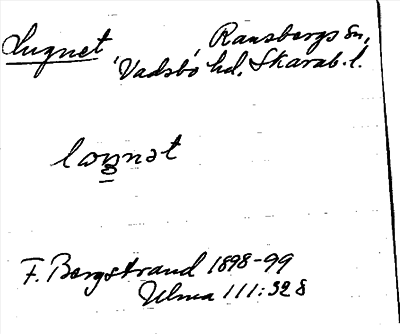 Lugnet, Ransbergs sn,
Vadsbo hd, Skarab. l.
Ulma 111:328
F. Bergstrand 1898-99